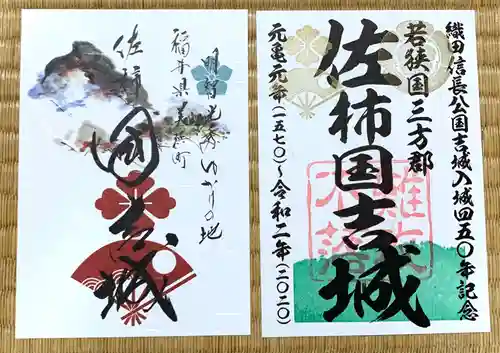 明智光秀ゆかりの地
福井県美浜町
佐柿
国吉城
織田信長公国吉城入城四五〇年記念
若狭国三方郡
佐柿国吉城
難攻
不落
元亀元年(一五七〇)~令和二年(二〇二〇)